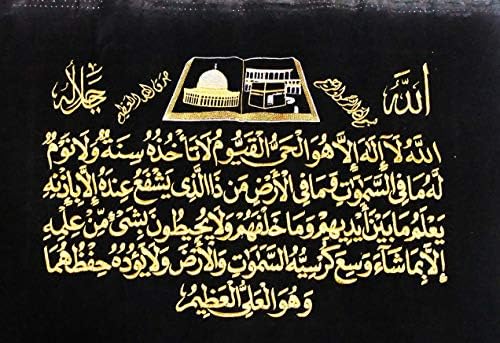 الله
بسم الله الرحمن الرحيم
صدق الله العظيم
جلاله
الله لا إله إلا هو الحي القيوم لا تأخذه سنة ولا نوم
له ما في السموات وما في الأرض من ذا الذي يشفع عنده إلا بإذنه
يعلم ما بين أيديهم وما خلفهم ولا يحيطون بشيء من علمه
إلا بما شاء وسع كرسيه السموات والأرض ولا يؤده حفظهما
وهو العلي العظيم